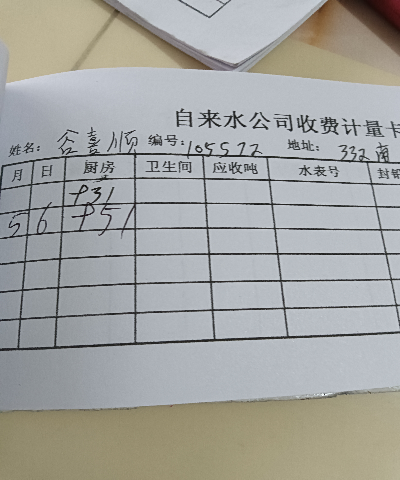 自来水公司收费计量卡
姓名: 谷喜顺 编号: 105572 地址: 332南
月 日 厨房 卫生间 应收吨 水表号 封铅
731
5 6 751